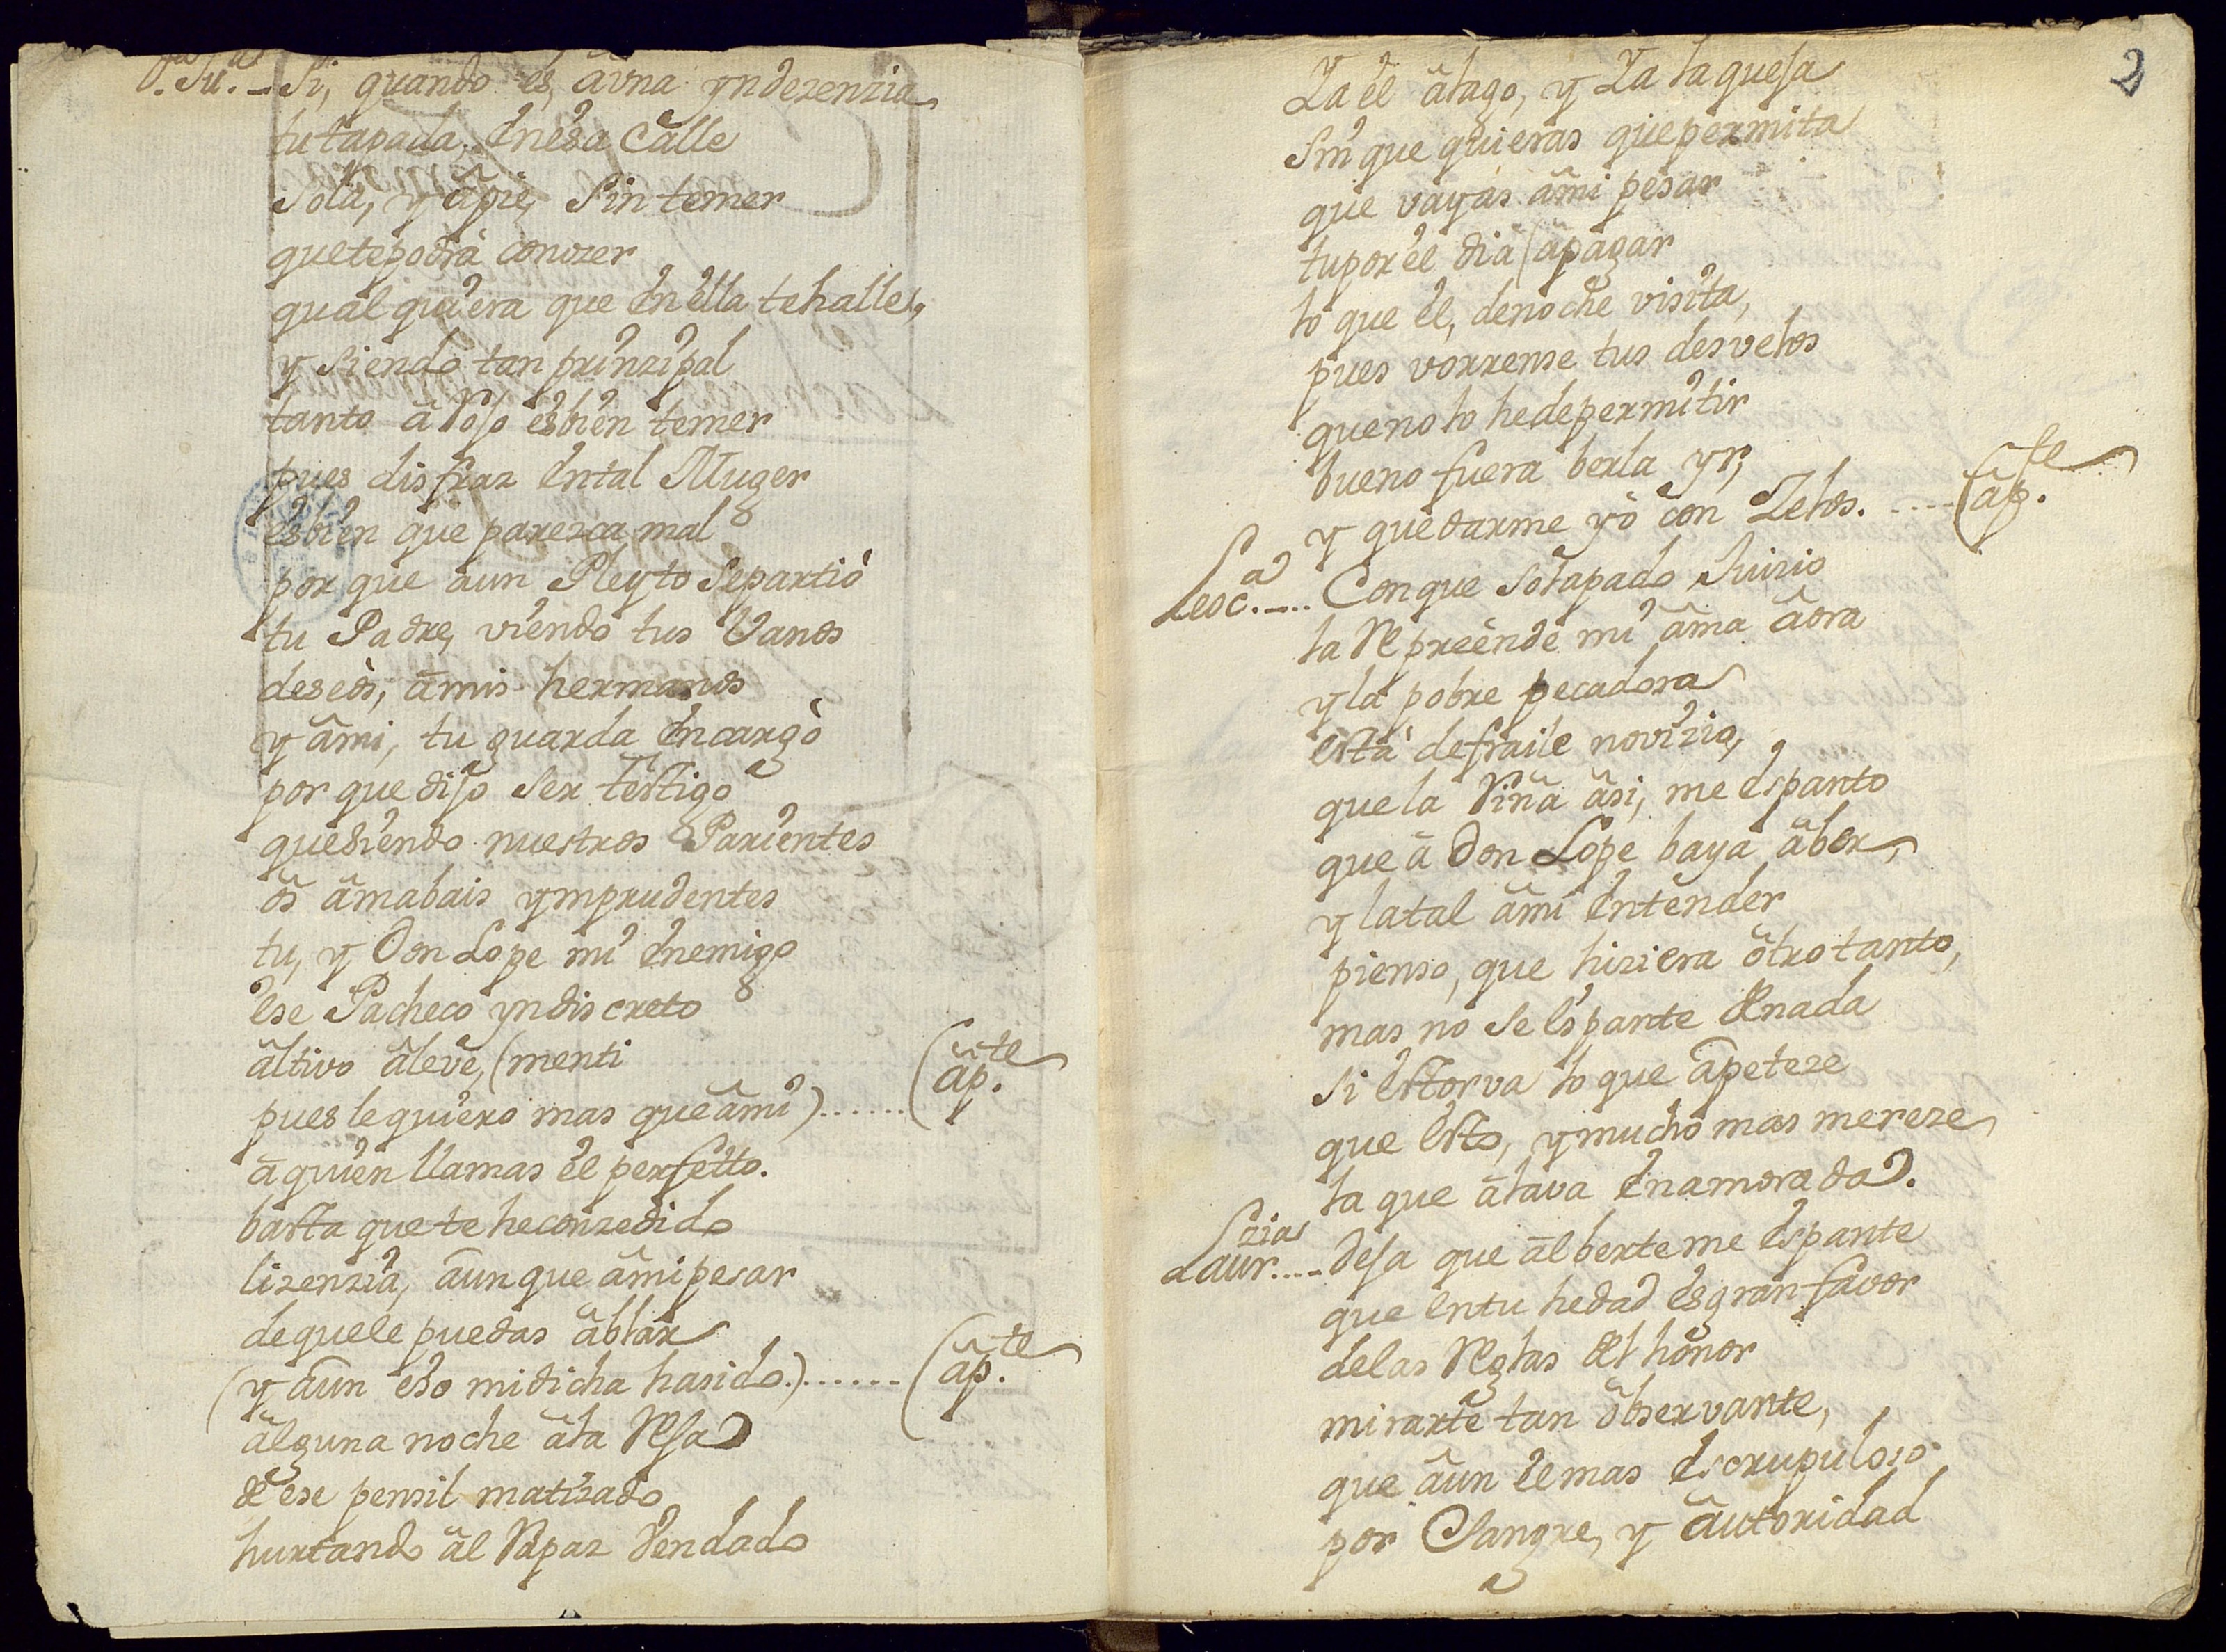 D.ª Ju.ª - Si, quando es, âvna yndezenzia
tu tapada, Enesa Calle
sola, y âpie, sin temer
quetepodrà conozer
qualquiera que En ella tehalle,
y siendo tan prinzipal
tanto â Roso esbien temer
pues disfraz Ental Muger
esbien que parezca mal
por que aun Pleyto Separtiò
tu Padre, viendo tus Vanos
deseòs, âmis hermanos
y âmi, tu guarda Encargò
por que dijo ser testigo
quesiendo nuestros Parientes
ôs âmabais ymprudentes
tu, y Don Lope mi Enemigo
ese Pacheco yndiscreto
âltivo âleve, (menti
pues lequiero mas queâmi) ...... (âp.te
âquien llamas el perfetto.
basta que te heconzedido
lizenzia, âunque âmipesar
dequele puedas âblar
(y âun eso midicha hasido.) ...... (âp.te
âlguna noche âla Reja
de ese pensil matizado
hurtando âl Rapaz Vendado
2
Ya el âlago, y Ya la queja
Sin que quieras quepermita
que vayas âmi pesar
tupor el dia (âpagar
lo que el, denoche visita,
pues vorrense tus desvelos
queno lo hedepermitir
bueno fuera berla yr,
y quedarme yò con Zelos. .... (âp.te
Leoc.ª .... Conque solapado Juizio
la Repreènde mi âma âora
yla pobre pecadora
està defraile novizio,
quela Riña âsi, me Espanto
que â Don Lope baya âber,
y latal âmi Entender
pienso, que hiziera ôtrotanto,
mas no se Espante de nada
si Estorva lo que âpeteze
que Esto, ymucho mas mereze
la que âlava Enamorada.
Laur.zia .... Deja que âl berteme Espante
que Entu hedad esgran favor
delas Reglas del honor
mirarte tan ôbservante,
que âun el mas Escrupuloso
por Sangre, y âutoridad